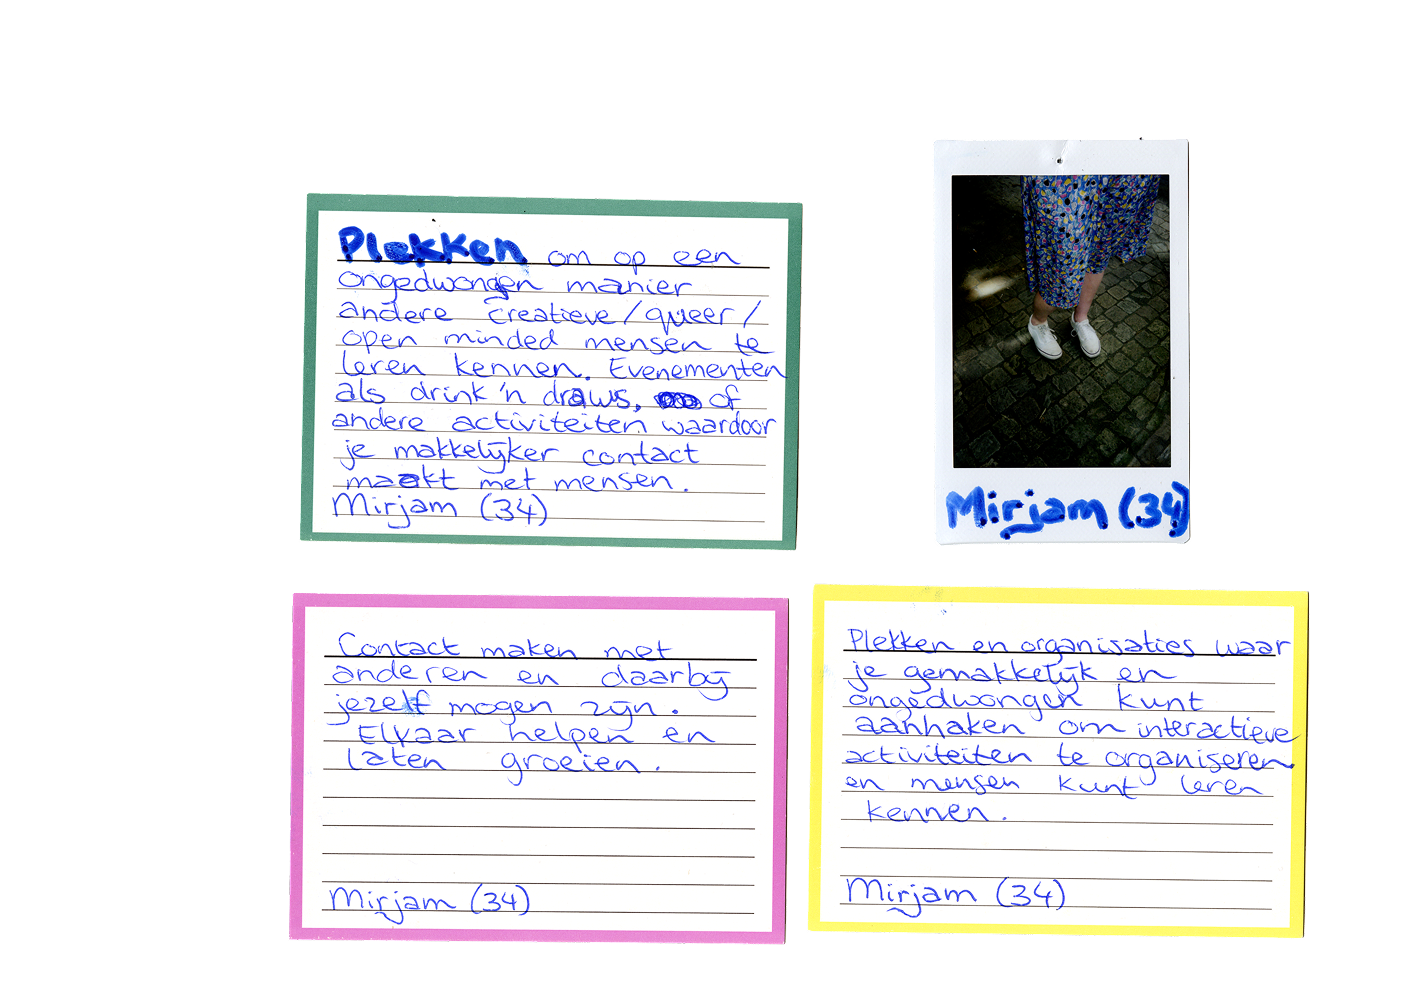 Plekken om op een
ongedwongen manier
andere creatieve/queer/
open minded mensen te
leren kennen. Evenementen
als drink 'n draws, of
andere activiteiten waardoor
je makkelijker contact
maakt met mensen.
Mirjam (34)
Mirjam (34)
Contact maken met
anderen en daarbij
jezelf mogen zijn.
Elkaar helpen en
laten groeien.
Mirjam (34)
Plekken en organisaties waar
je gemakkelijk en
ongedwongen kunt
aanhaken om interactieve
activiteiten te organiseren
en mensen kunt leren
kennen.
Mirjam (34)